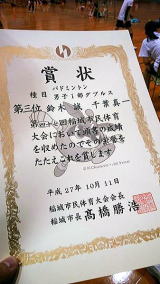 賞状
バドミントン
種目 男子1部ダブルス
第三位 鈴木 誠 千葉 真一
第四十七回稲城市民体育
大会において頭書の成績
を収めたのでその栄誉を
たたえこれを賞します
平成27年10月11日
稲城市民体育大会会長
稲城市長 高橋勝浩